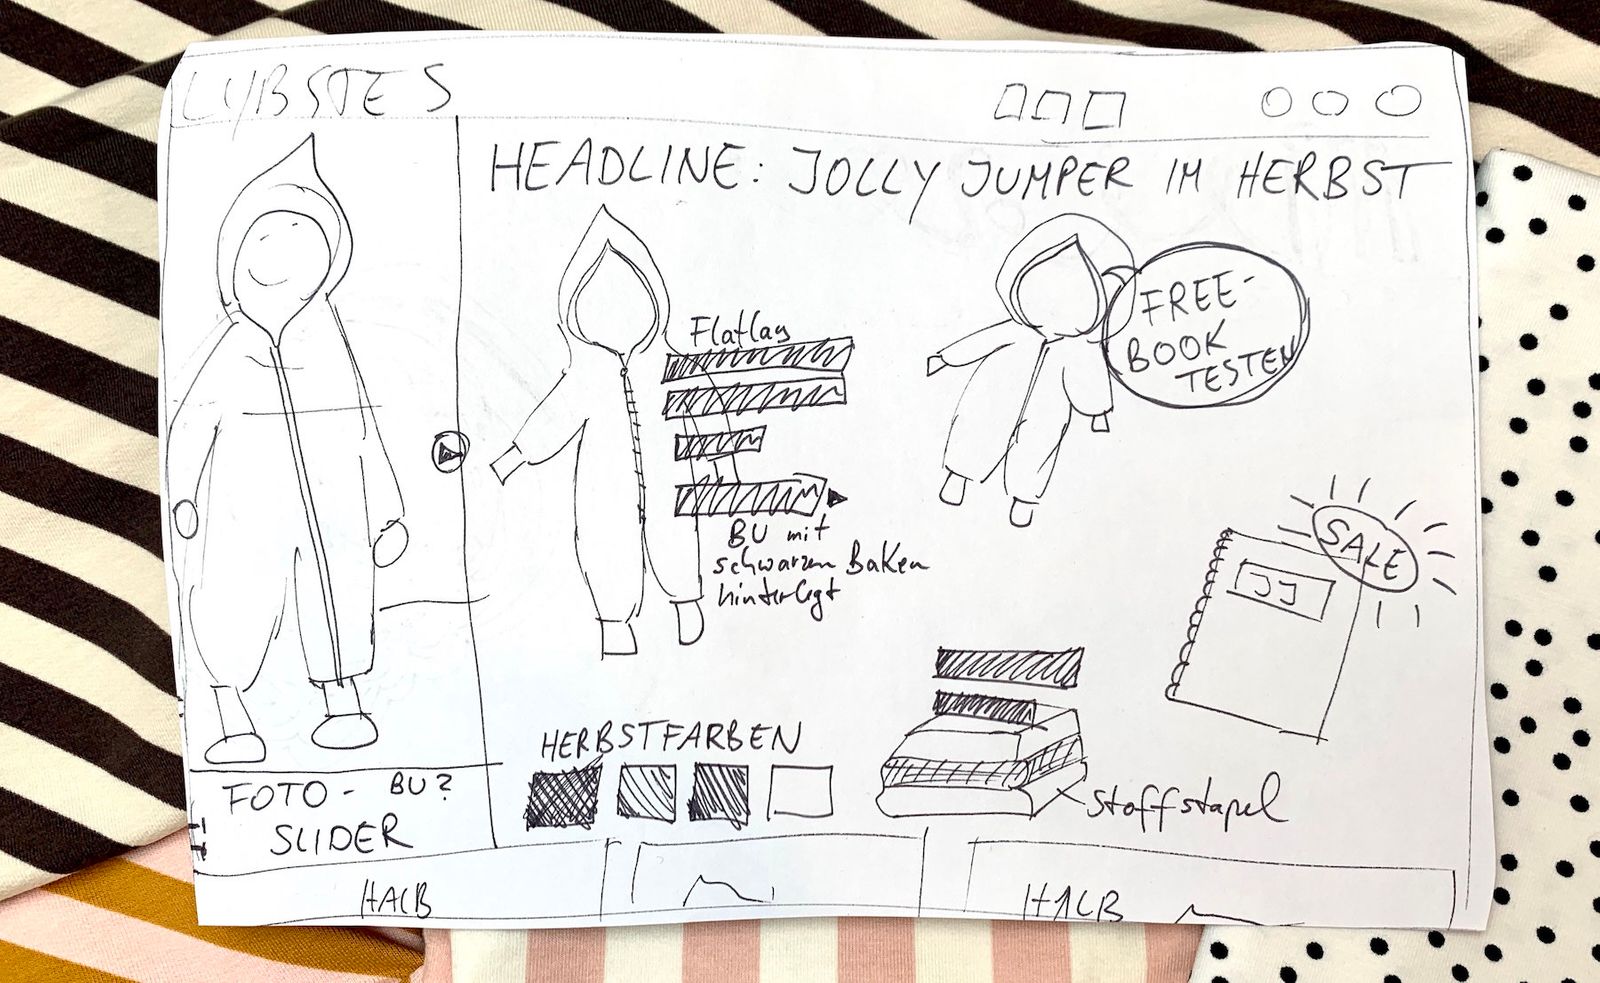 LYBSTES
HEADLINE: JOLLY JUMPER IM HERBST
Flatlay
BU mit
schwarzen Balken
hinterlegt
FREE-
BOOK
TESTEN
SALE
JJ
HERBSTFARBEN
Stoffstapel
FOTO- BU?
SLIDER
HALB
HALB